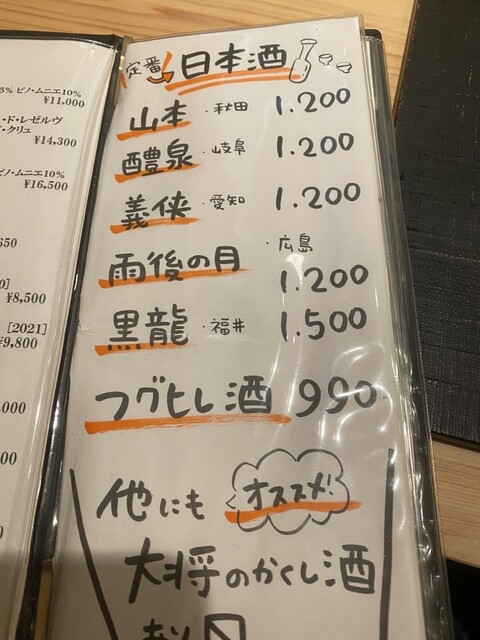 5% ピノ・ムニエ10%
¥11,000
・ド・レゼルヴ
・クリュ
¥14,300
ピノ・ムニエ10%
¥16,500
650
¥8,500
[2021]
¥9,800
,000
00
定番 日本酒
山本・秋田 1.200
醴泉・岐阜 1.200
義侠・愛知 1.200
雨後の月・広島 1.200
黒龍・福井 1.500
フグヒレ酒 990
他にも オススメ!
大将のかくし酒